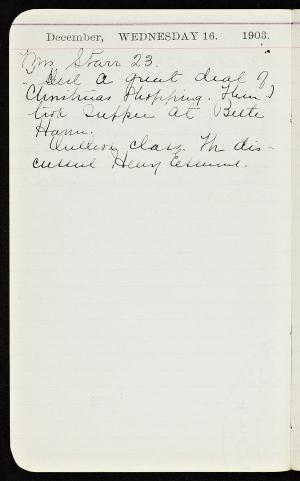 December, WEDNESDAY 16. 1903.
Mrs Starr 23.
Did a great deal of
Christmas Shopping. Then I
took Supper at
class. We dis-
cussed Henry Esmond.